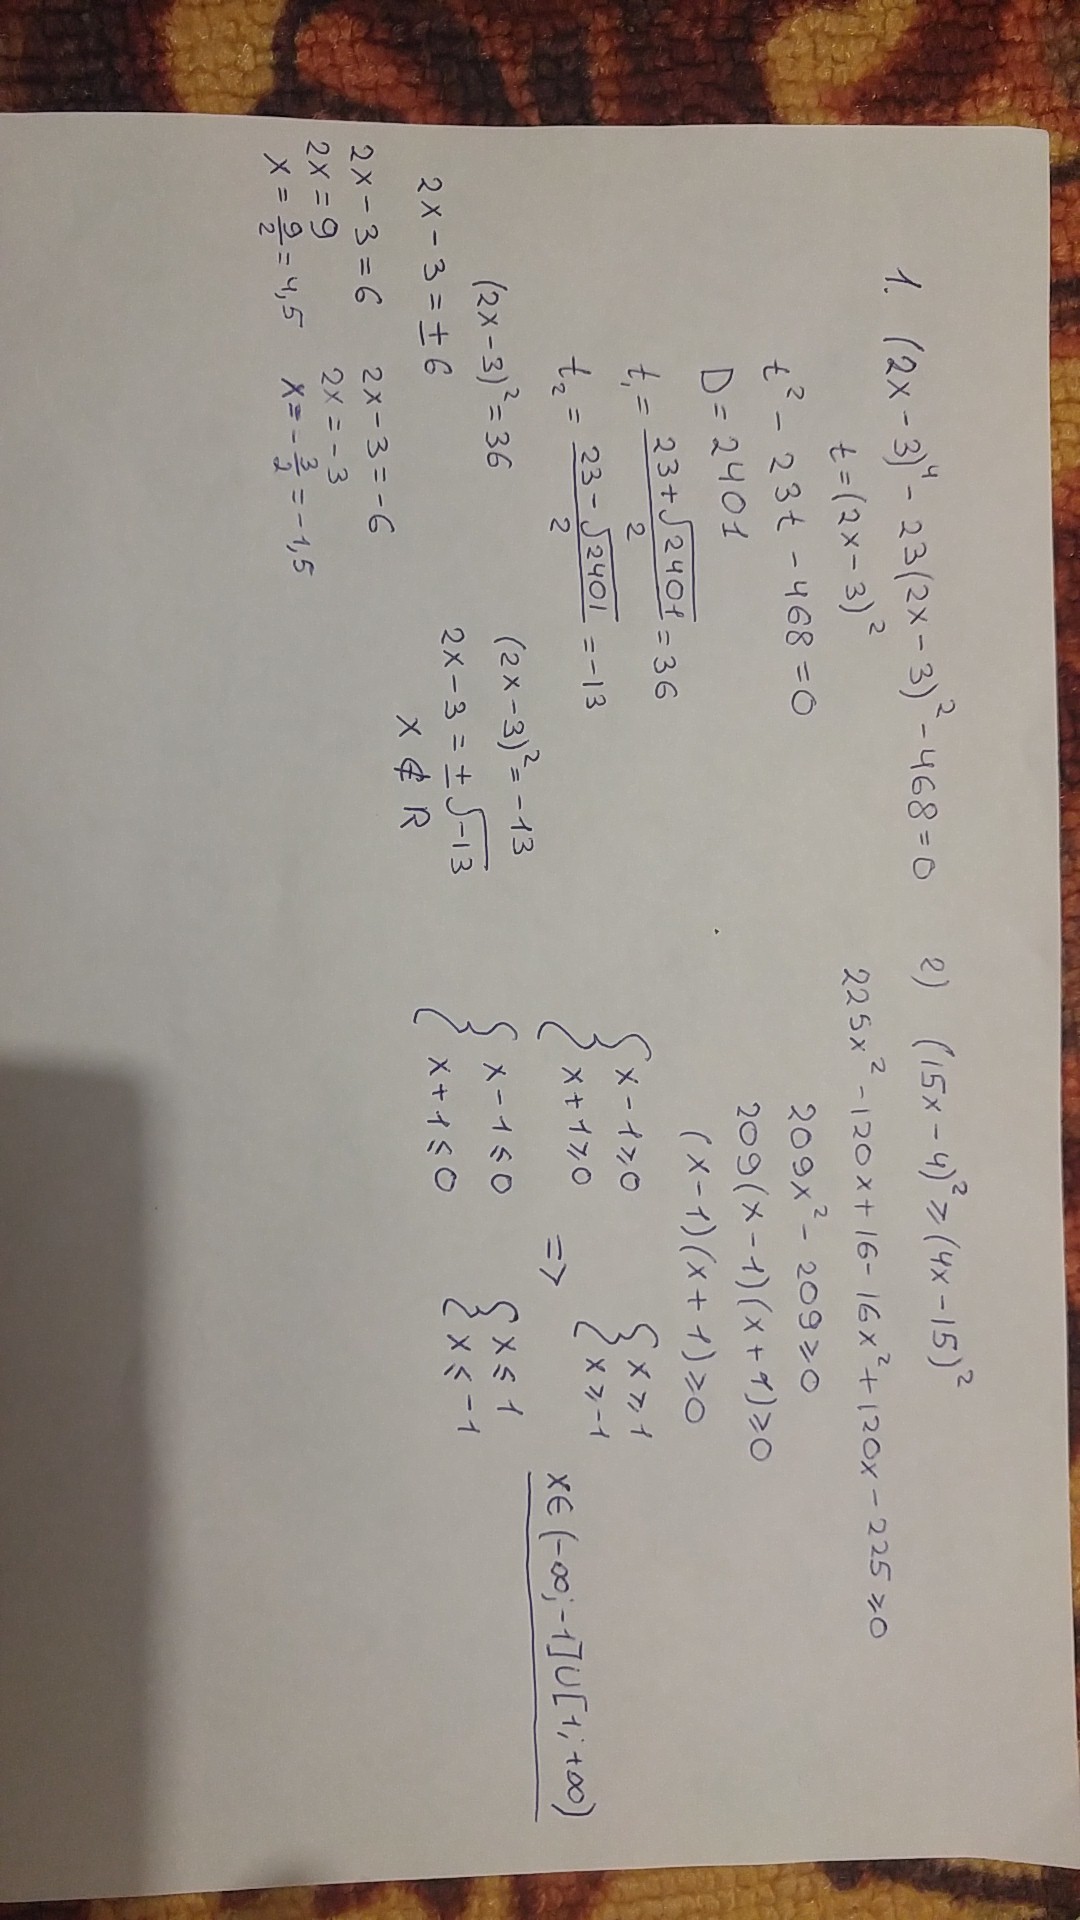 1. (2x-3)⁴-23(2x-3)²-468=0
t=(2x-3)²
t²-23t-468=0
D=2401
t₁=(23+√2401)/2=36
t₂=(23-√2401)/2=-13
(2x-3)²=36
2x-3=±6
2x-3=6
2x=9
x=9/2=4,5
2x-3=-6
2x=-3
x=-3/2=-1,5
(2x-3)²=-13
2x-3=±√-13
x∉R
2) (15x-4)²≥(4x-15)²
225x²-120x+16-16x²+120x-225≥0
209x²-209≥0
209(x-1)(x+1)≥0
(x-1)(x+1)≥0
{x-1≥0
x+1≥0
{x-1≤0
x+1≤0
=>
{x≥1
x≥-1
{x≤1
x≤-1
x∈(-∞;-1]∪[1;+∞)